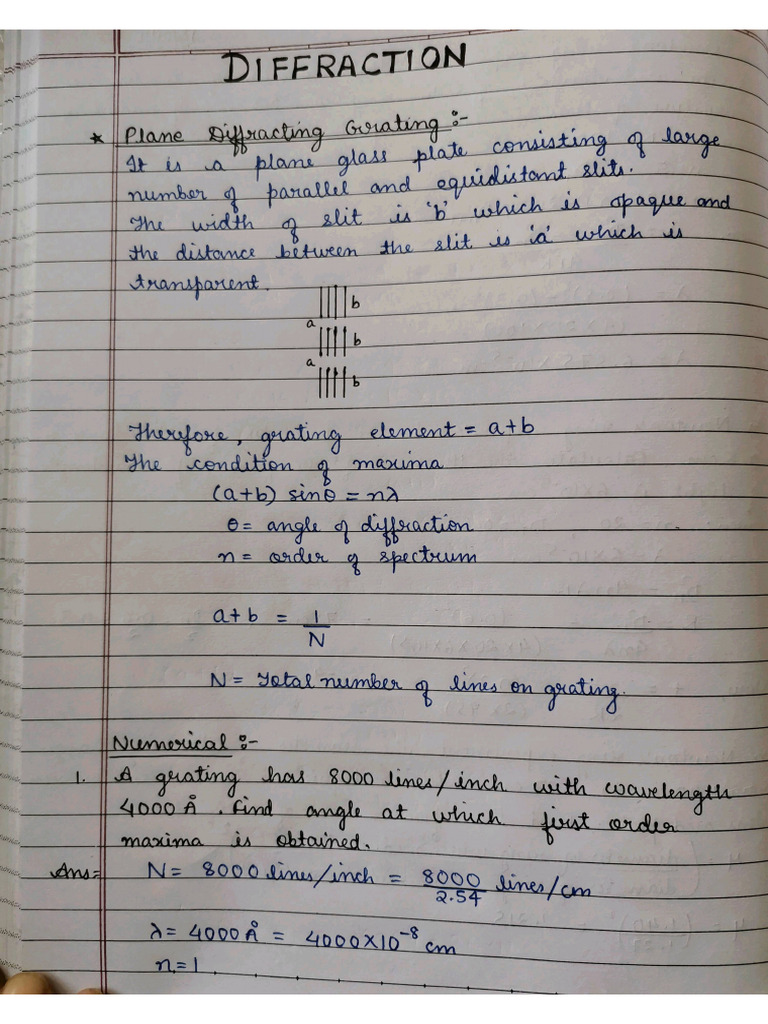 DIFFRACTION
* Plane Diffracting Grating :-
It is a plane glass plate consisting of large
number of parallel and equidistant slits.
The width of slit is 'b' which is opaque and
the distance between the slit is 'a' which is
transparent.
b
a
b
a
b
Therefore, grating element = a+b
The condition of maxima
(a+b) sinθ = nλ
θ = angle of diffraction
n = order of spectrum
a+b = 1/N
N = Total number of lines on grating.
Numerical :-
1. A grating has 8000 lines/inch with wavelength
4000 Å. Find angle at which first order
maxima is obtained.
Ans= N = 8000 lines/inch = 8000/2.54 lines/cm
λ = 4000 Å = 4000×10⁻⁸ cm
n=1